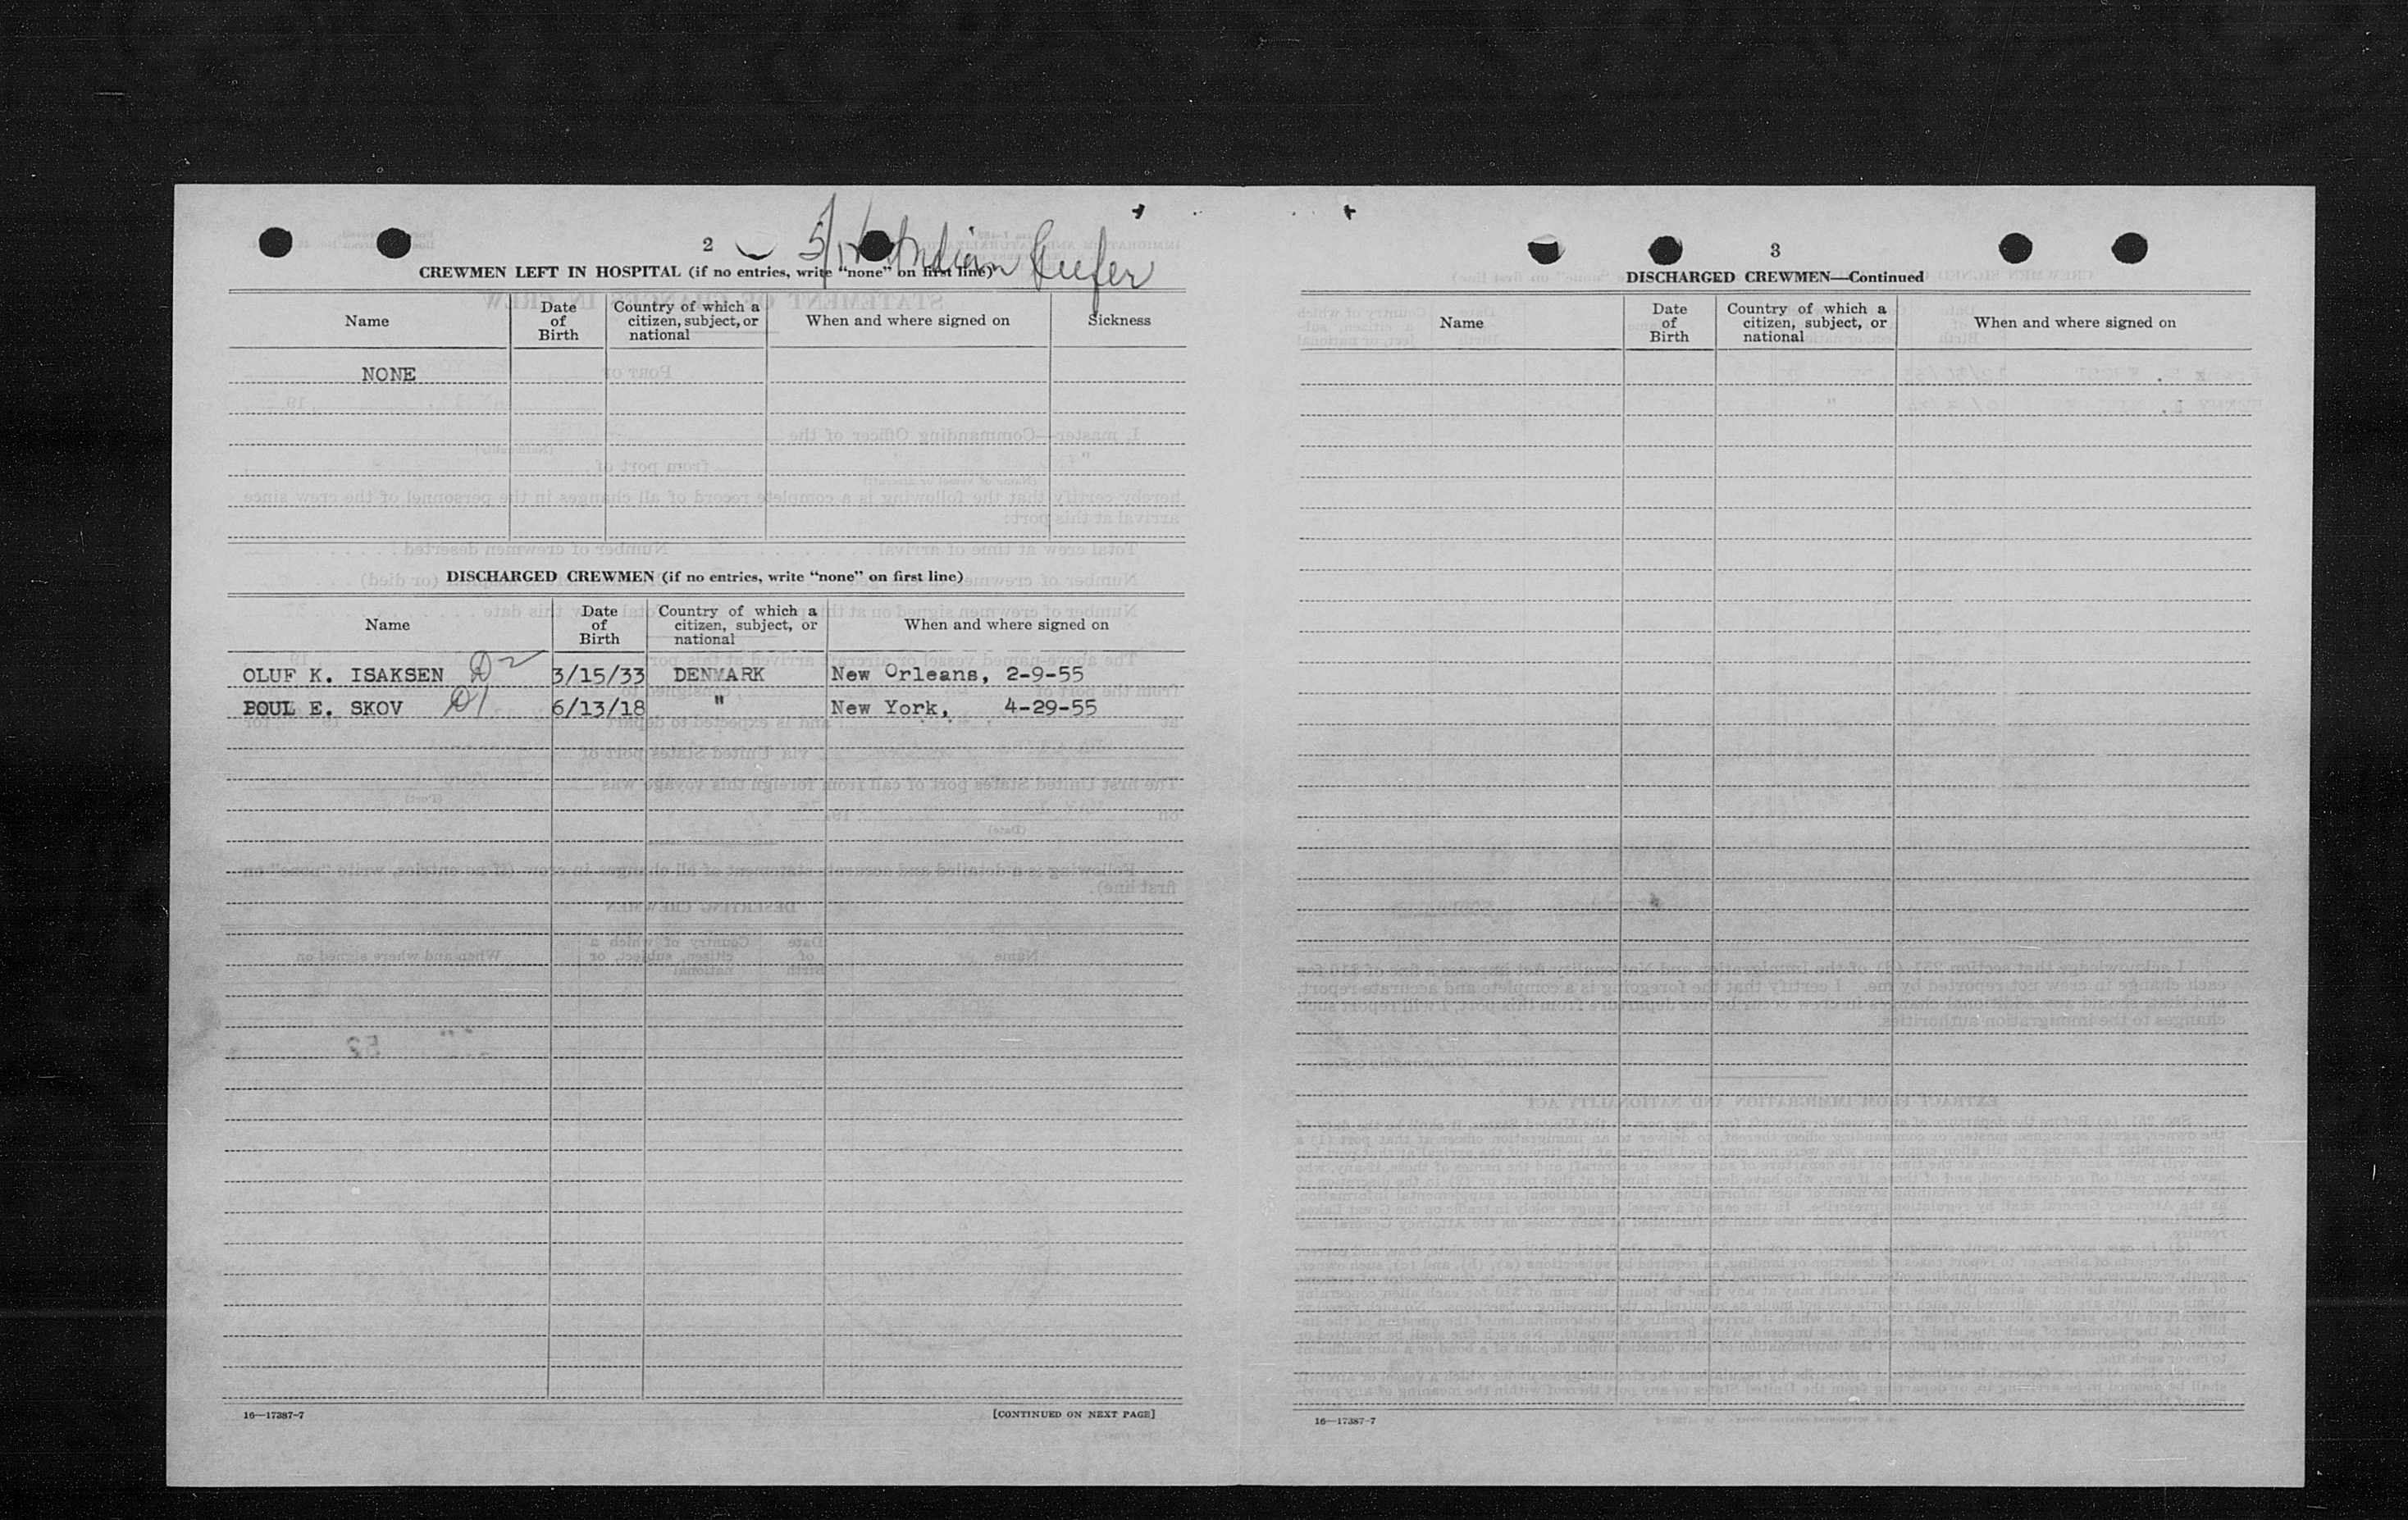 2
Indian Reefer
CREWMEN LEFT IN HOSPITAL (if no entries, write "none" on first line)
Name
Date of Birth
Country of which a citizen, subject, or national
When and where signed on
Sickness
NONE
DISCHARGED CREWMEN (if no entries, write "none" on first line)
Name
Date of Birth
Country of which a citizen, subject, or national
When and where signed on
OLUF K. ISAKSEN D2 3/15/33 DENMARK New Orleans, 2-9-55
POUL E. SKOV D1 6/13/18 " New York, 4-29-55
16—17387-7
[CONTINUED ON NEXT PAGE]
3
DISCHARGED CREWMEN—Continued
Name
Date of Birth
Country of which a citizen, subject, or national
When and where signed on
16—17387-7